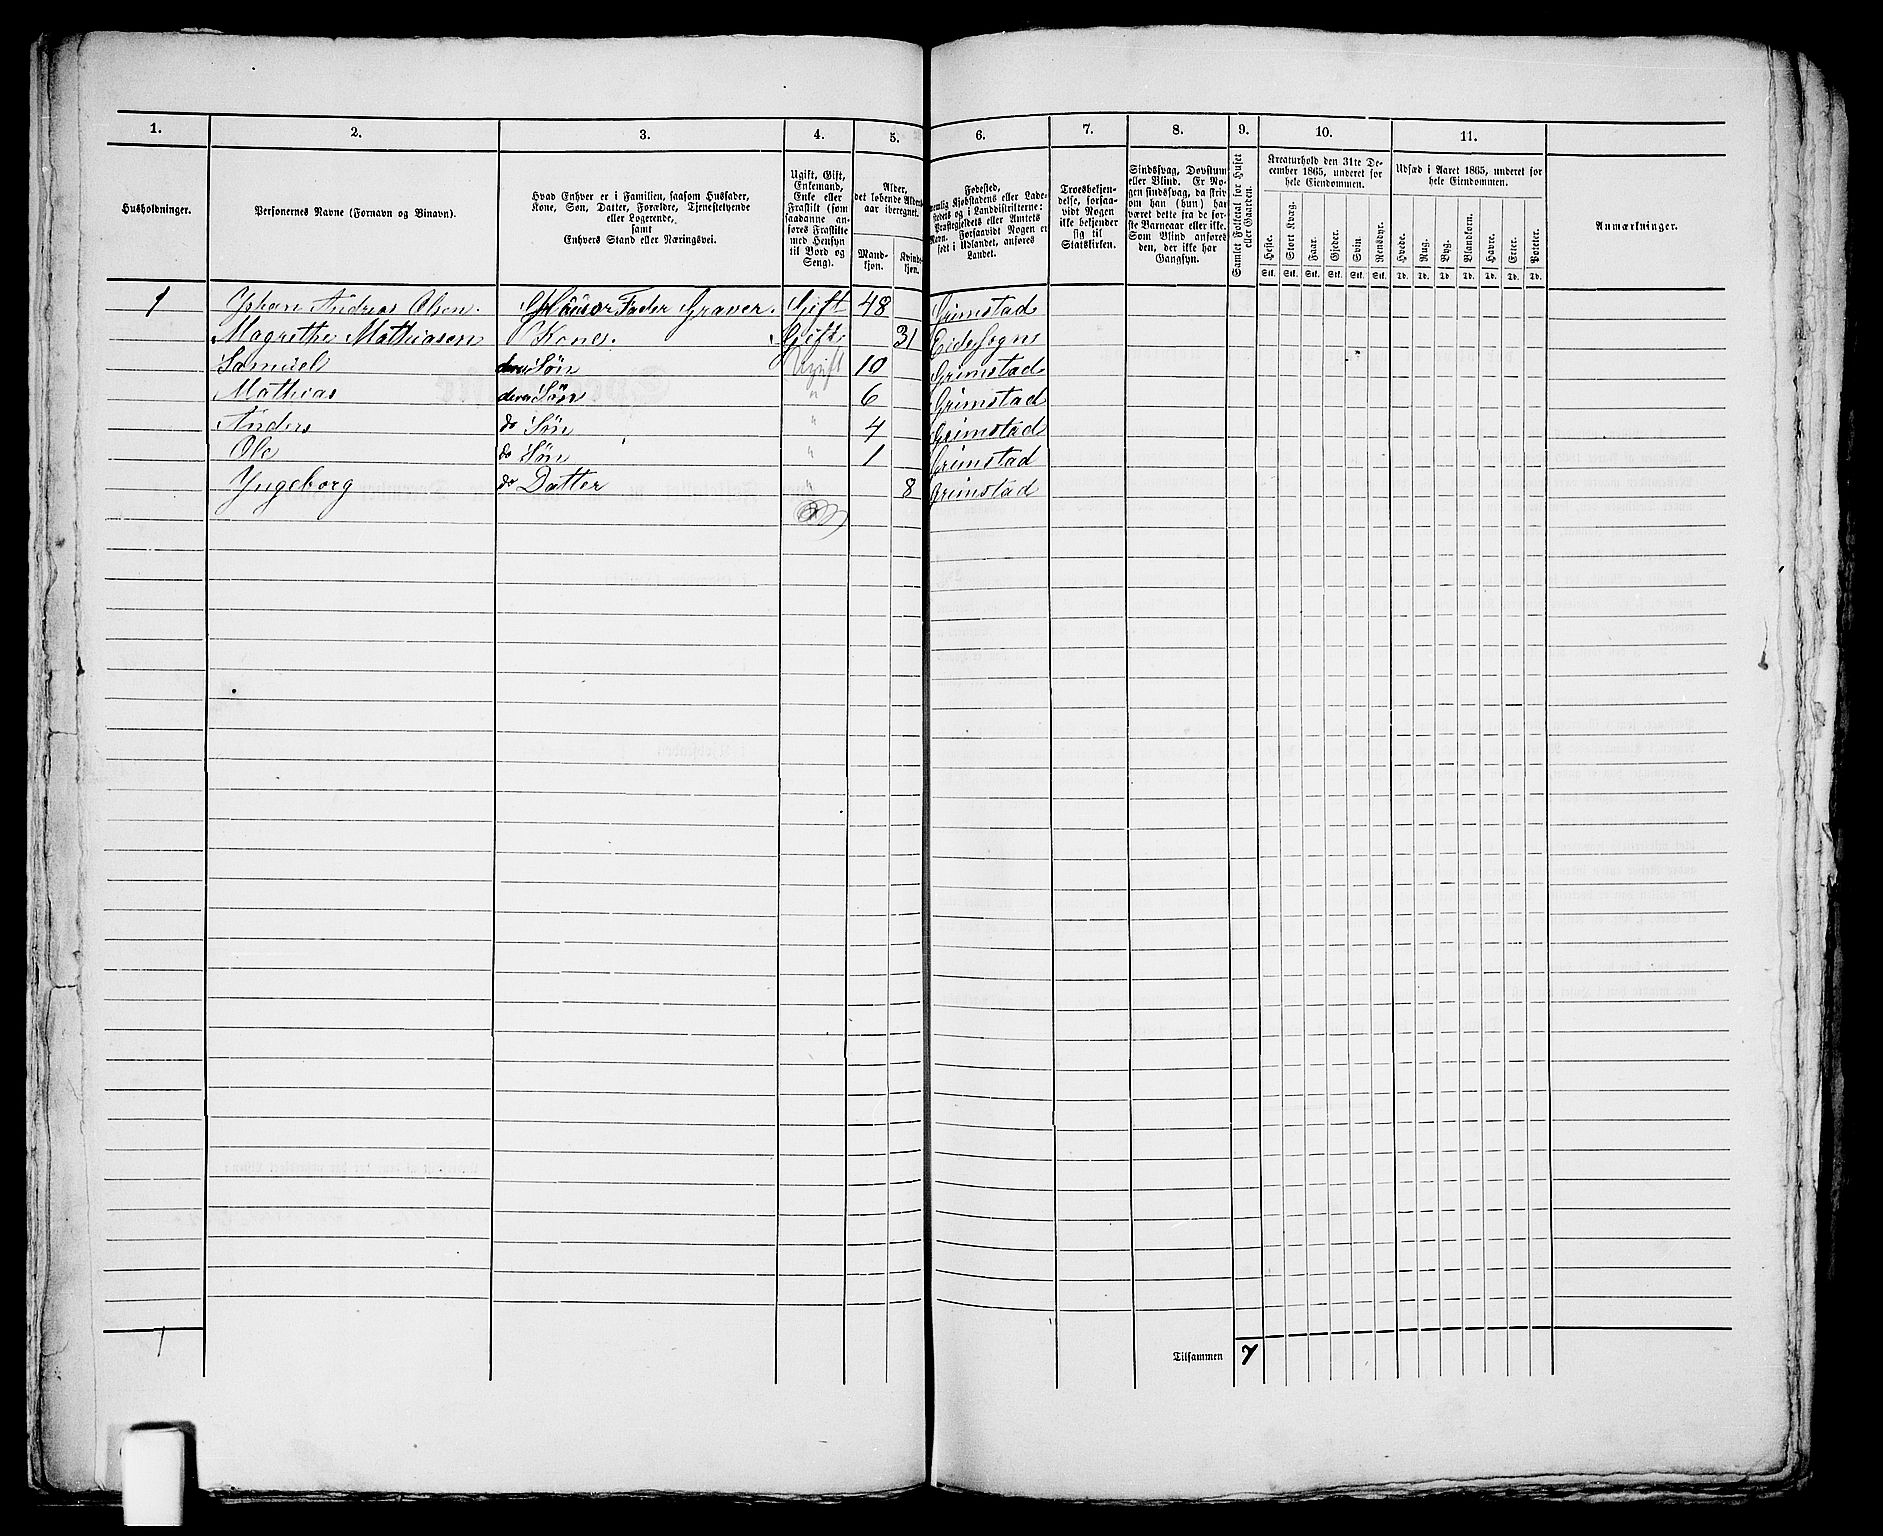 1. 2. 3. 4. 5. 6. 7. 8. 9. 10. 11.
Husholdninger.
Personernes Navne (Fornavn og Binavn).
Hvad Enhver er i Familien, saasom Husfader,
Kone, Søn, Datter, Forældre, Tjenestetyende
eller Logerende,
samt
Enhvers Stand eller Næringsvei.
Ugift, Gift,
Enkemand,
Enke eller
Fraskilt (som
saadanne an-
føres Fraskilte
med Hensyn
til Bord og
Seng).
Alder,
det løbende Alders-
aar iberegnet.
Mand-
kjøn.
Kvinde-
kjøn.
Fødested,
nemlig Kjøbstadens eller Lade-
stedets og i Landdistrikterne:
Præstegjeldets eller Amtets
Navn. Forsaavidt Nogen er
født i Udlandet, anføres
Landet.
Troesbekjen-
delse, forsaa-
vidt Nogen
ikke bekjender
sig til
Statskirken.
Sindssvag, Døvstum
eller Blind. Er No-
gen sindssvag, da skriv
om han (hun) har
været dette fra de før-
ste Barneaar eller ikke.
Som Blind anføres
den, der ikke har
Gangsyn.
Samlet Folketal for Huset
eller Gaarden.
Kreaturhold den 31te De-
cember 1865, underet for
hele Eiendommen.
Heste. Stort Kvæg. Faar. Gjeder. Svin. Rensdyr.
Stk. Stk. Stk. Stk. Stk. Stk.
Udsæd i Aaret 1865, underet for
hele Eiendommen.
Hvede. Rug. Byg. Blandkorn. Havre. Erter. Poteter.
Td. Td. Td. Td. Td. Td. Td.
Anmærkninger.
1 Johan Andreas Olsen. Huusfader Graver. Gift 48 Grimstad
Magrethe Mathiasen Kone. Gift 31 Eide Sogn
Samuel deres Søn Ugift 10 Grimstad
Mathias deres Søn " 6 Grimstad
Anders do Søn " 4 Grimstad
Ole do Søn " 1 Grimstad
Yngeborg do Datter " 8 Grimstad
1
Tilsammen 7